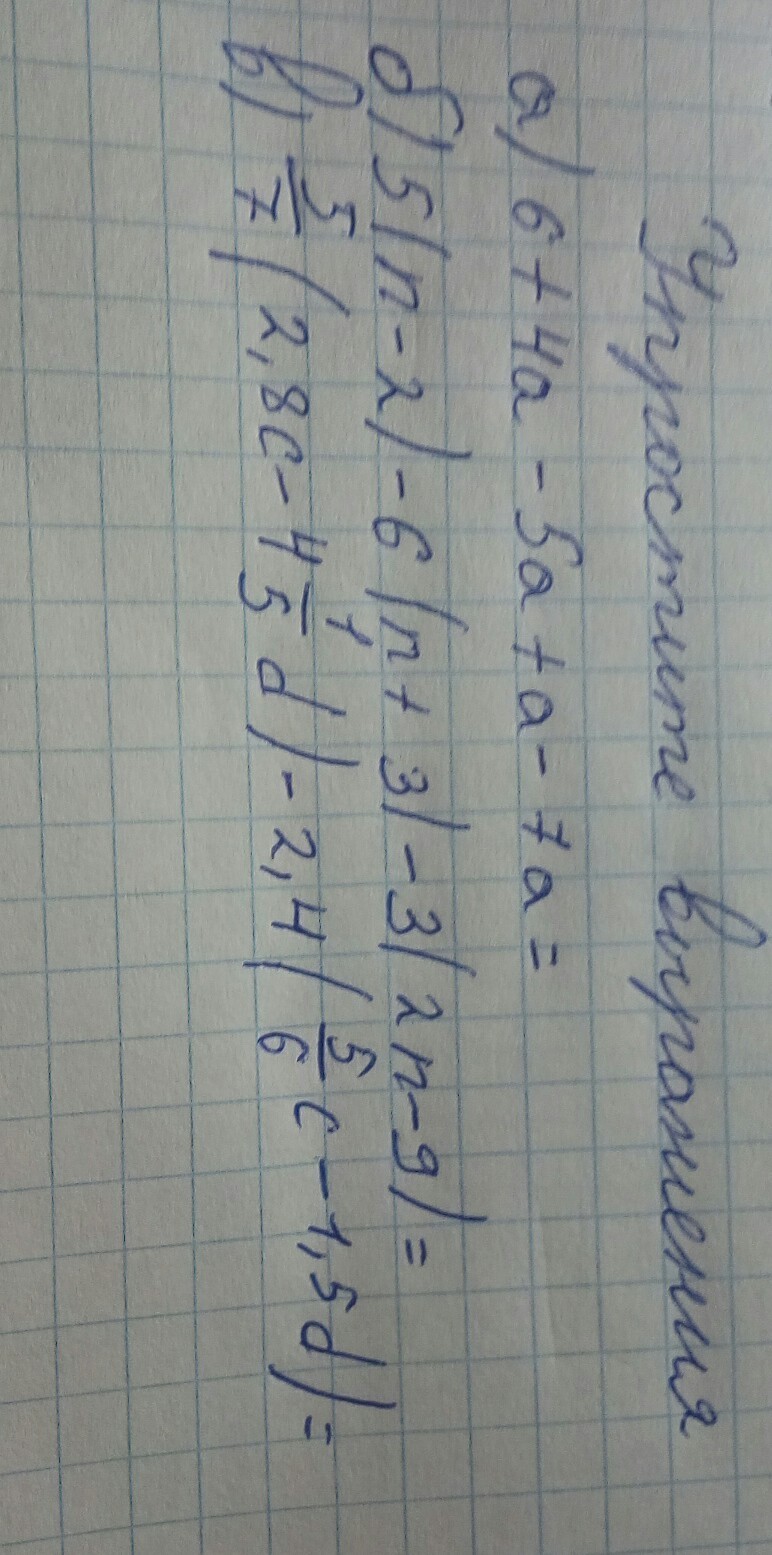 Упростите выражения
а) 6+4а-5а+а-7а=
б) 5(n-2)-6(n+3)-3(2n-9)=
в) 5/7(2,8c-4 1/5 d)-2,4(5/6 c-1,5d)=